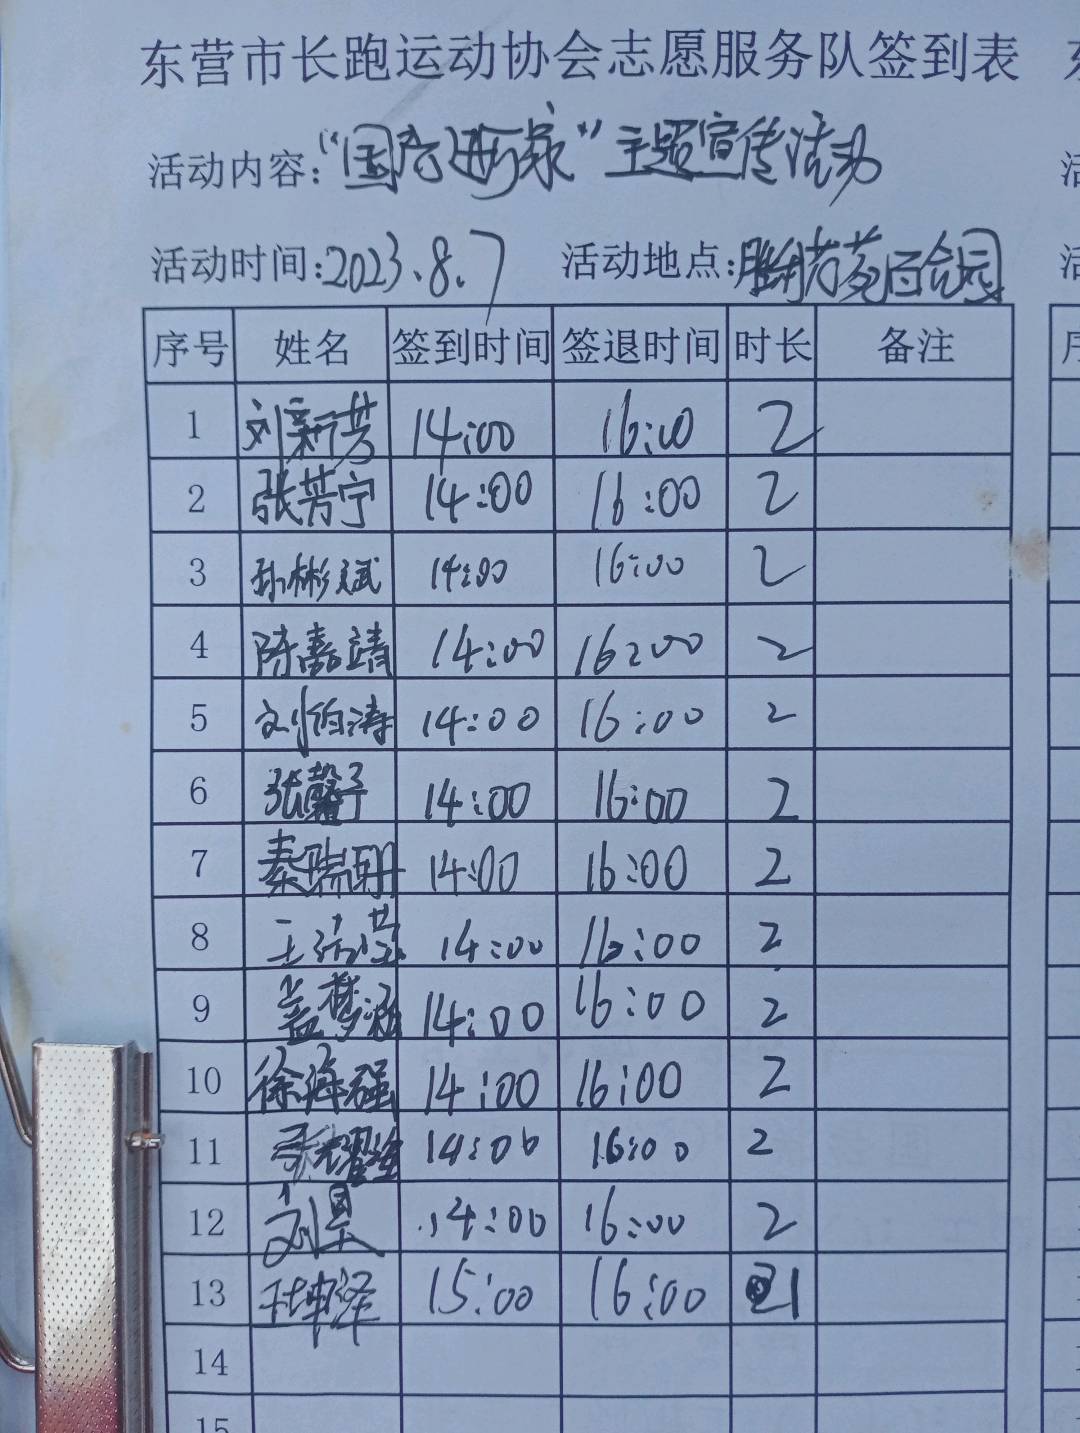 东营市长跑运动协会志愿服务队签到表
活动内容:“国 进万家”主题宣传活动
活动时间:2023.8.7 活动地点:胜利芳苑百合园
序号 姓名 签到时间 签退时间 时长 备注
1 刘新芳 14:00 16:00 2
2 张芳宁 14:00 16:00 2
3 孙彬斌 14:00 16:00 2
4 陈嘉靖 14:00 16:00 2
5 刘伯涛 14:00 16:00 2
6 张馨予 14:00 16:00 2
7 秦瑞 14:00 16:00 2
8 王 14:00 16:00 2
9 盖梦涵 14:00 16:00 2
10 徐海强 14:00 16:00 2
11 张耀 14:00 16:00 2
12 刘昊 14:00 16:00 2
13 杜坤泽 15:00 16:00 1
14
15